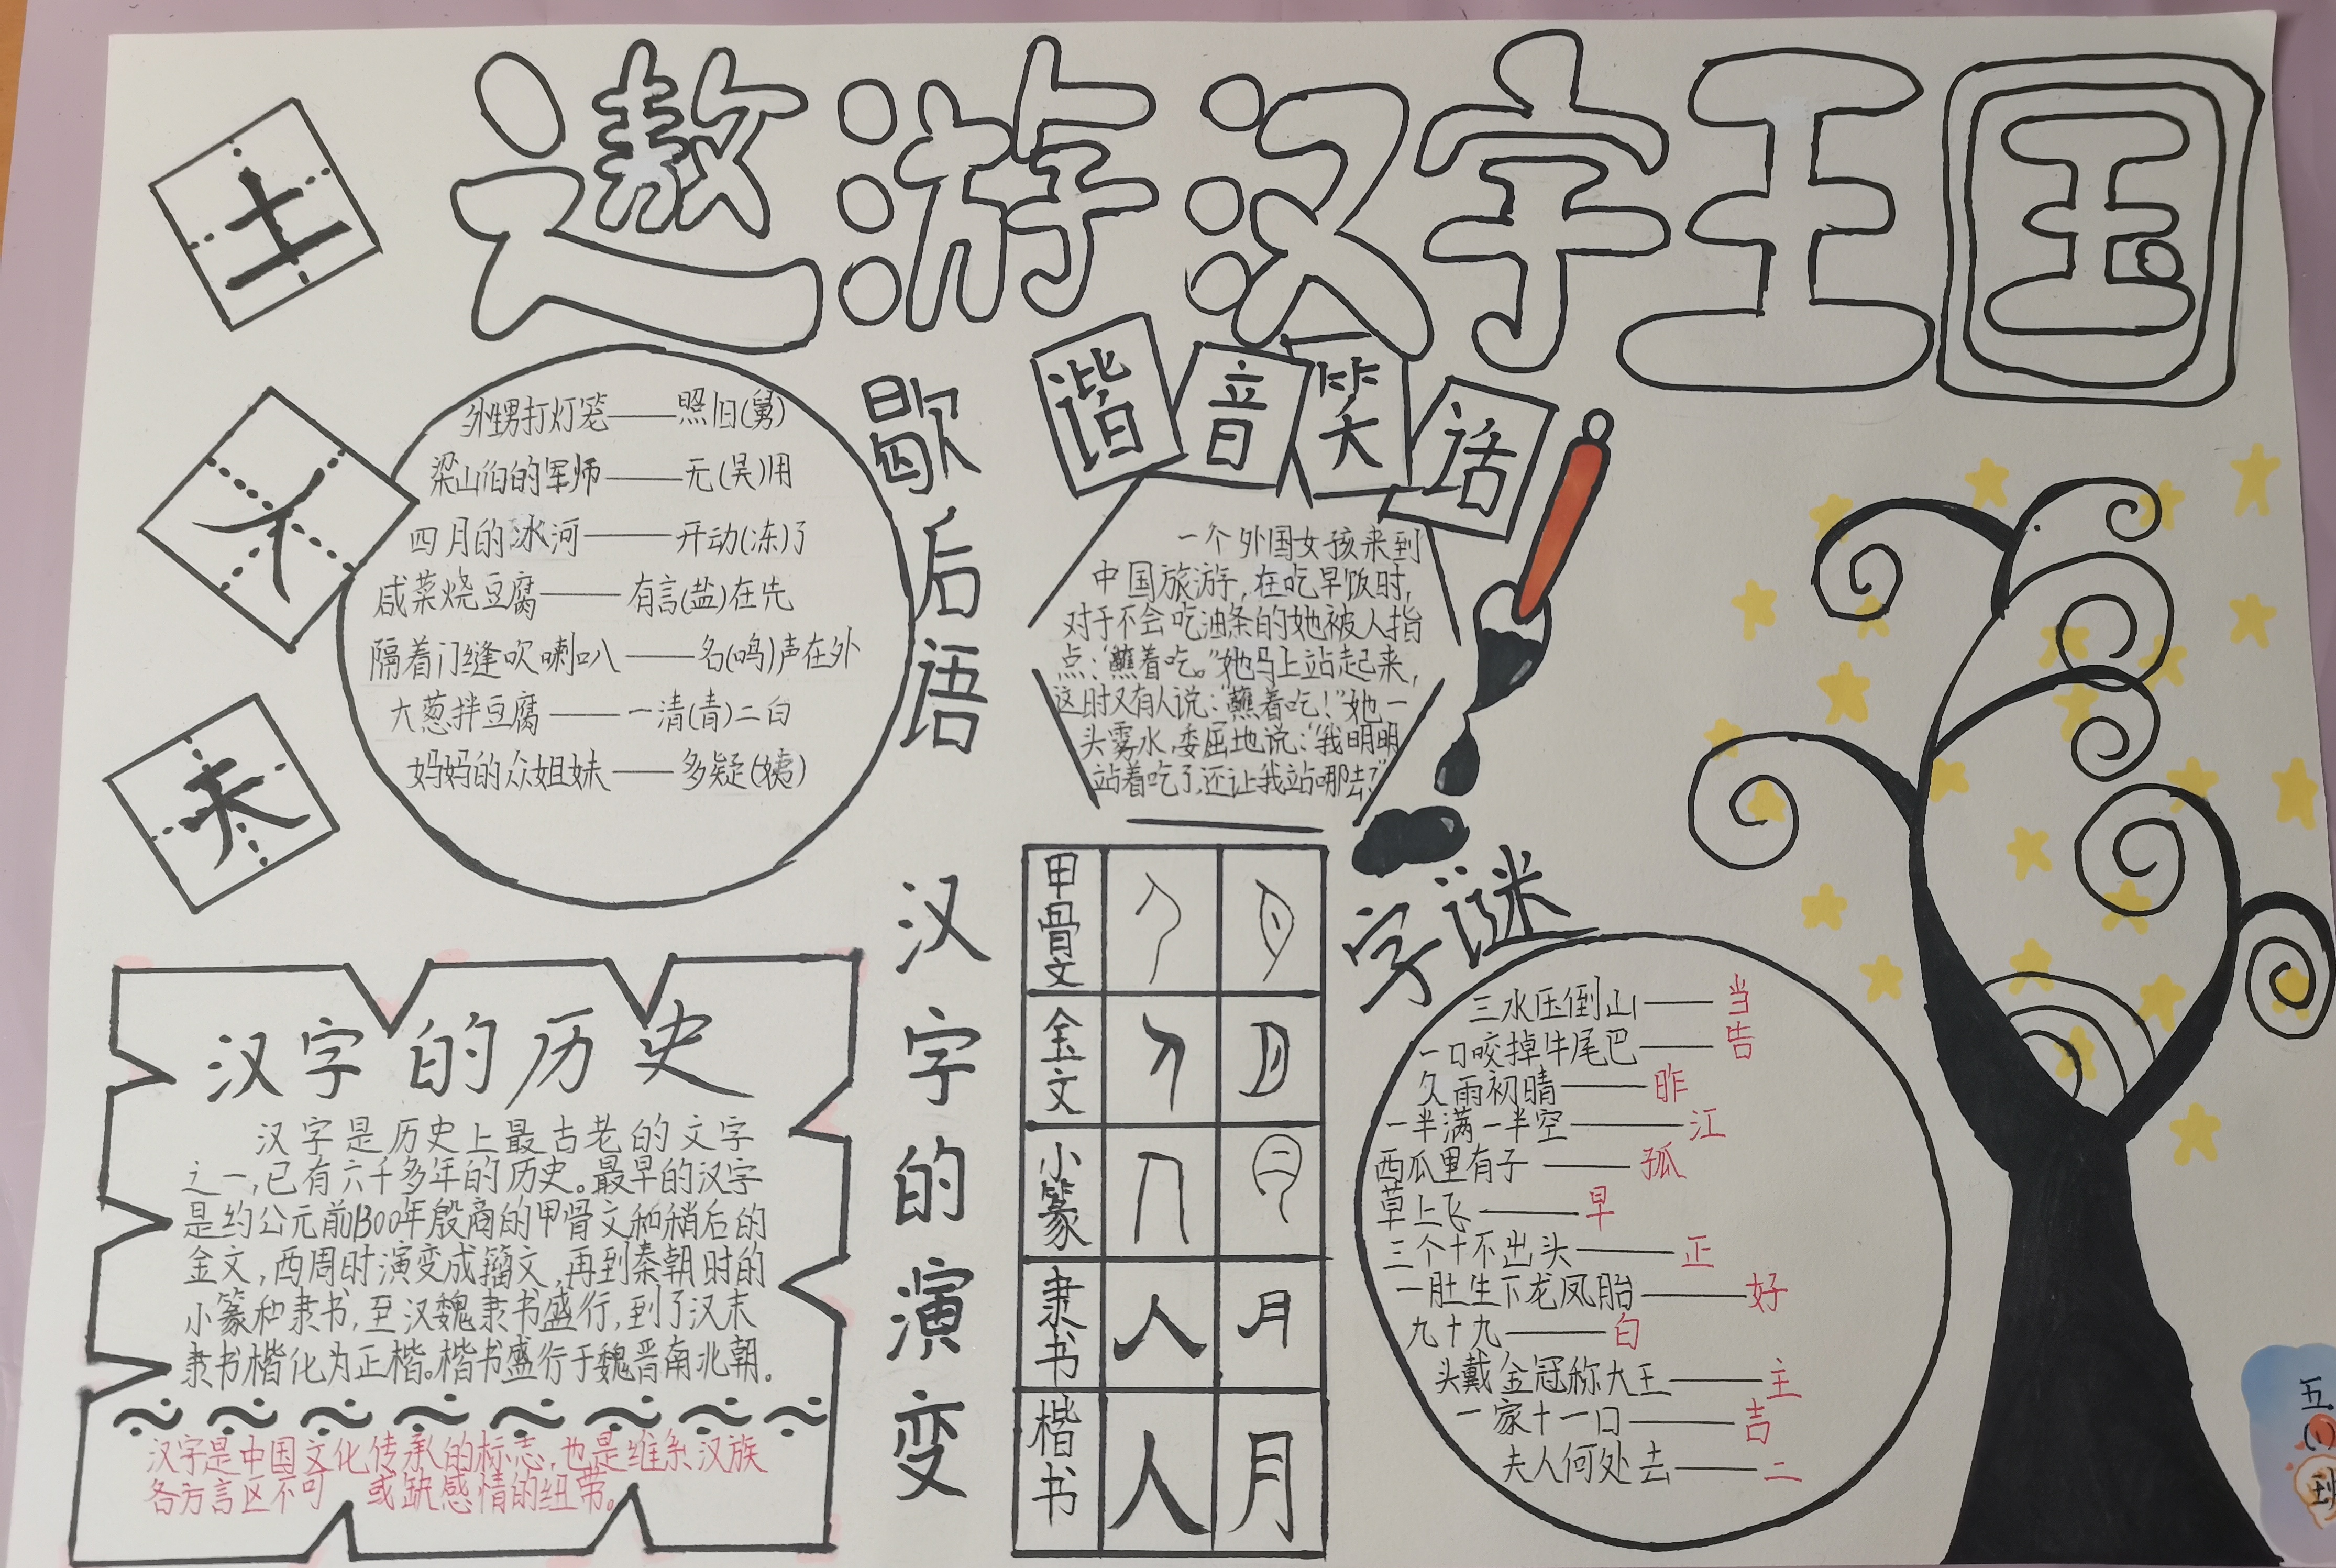 遨游汉字王国
士
不
夫
歇后语
外甥打灯笼——照旧(舅)
梁山泊的军师——无(吴)用
四月的冰河——开动(冻)了
咸菜烧豆腐——有言(盐)在先
隔着门缝吹喇叭——名(鸣)声在外
大葱拌豆腐——一清(青)二白
妈妈的众姐妹——多疑(姨)
谐音笑话
一个外国女孩来到
中国旅游,在吃早饭时,
对于不会吃油条的她被人指
点:“蘸着吃。”她马上站起来,
这时又有人说:“蘸着吃!”她一
头雾水,委屈地说:“我明明
站着吃了,还让我站哪去?”
汉字的历史
汉字是历史上最古老的文字
之一,已有六千多年的历史。最早的汉字
是约公元前1300年殷商的甲骨文和稍后的
金文,西周时演变成籀文,再到秦朝时的
小篆和隶书,至汉魏隶书盛行,到了汉末
隶书楷化为正楷。楷书盛行于魏晋南北朝.
汉字是中国文化传承的标志,也是维系汉族
各方言区不可 或缺感情的纽带。
汉字的演变
甲骨文
金文
小篆
隶书 人 月
楷书 人 月
字谜
三水压倒山——当
一口咬掉牛尾巴——告
久雨初晴——昨
一半满一半空——江
西瓜里有子——孤
草上飞——早
三个十不出头——正
一肚生下龙凤胎——好
九十九——白
头戴金冠称大王——主
一家十一口——吉
夫人何处去——二
五(1)班